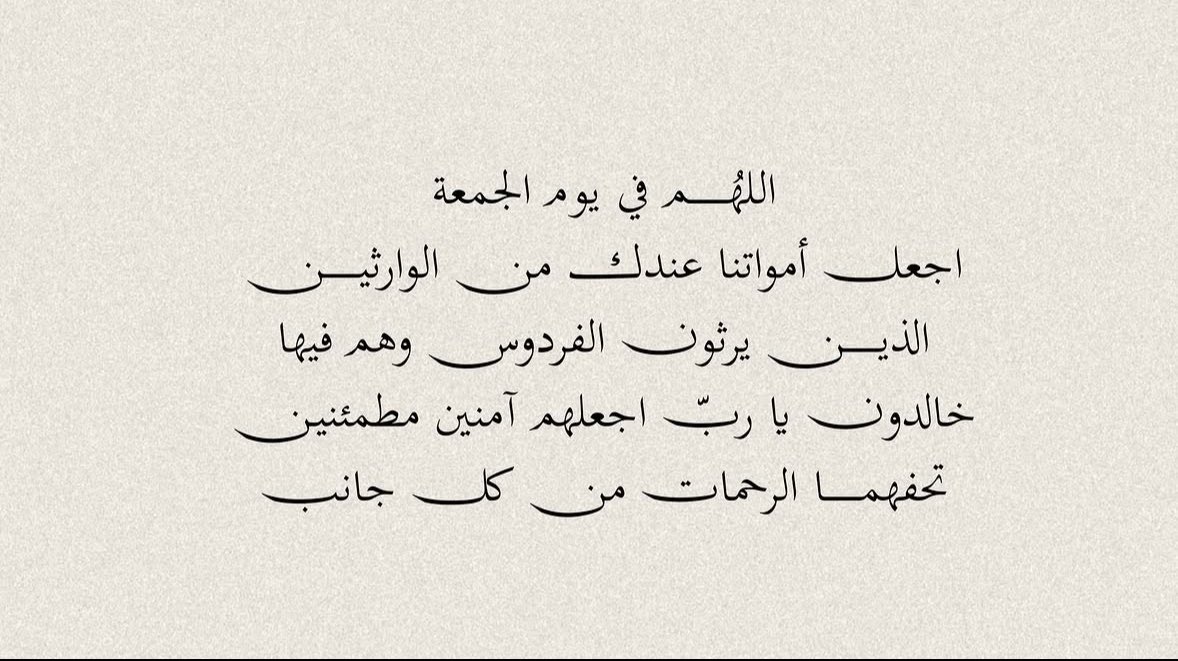 اللهُـــم في يوم الجمعة
اجعل أمواتنا عندك من الوارثيـــن
الذيـــن يرثون الفردوس وهم فيها
خالدون يا ربّ اجعلهم آمنين مطمئنين
تحفهمـــا الرحمات من كل جانب